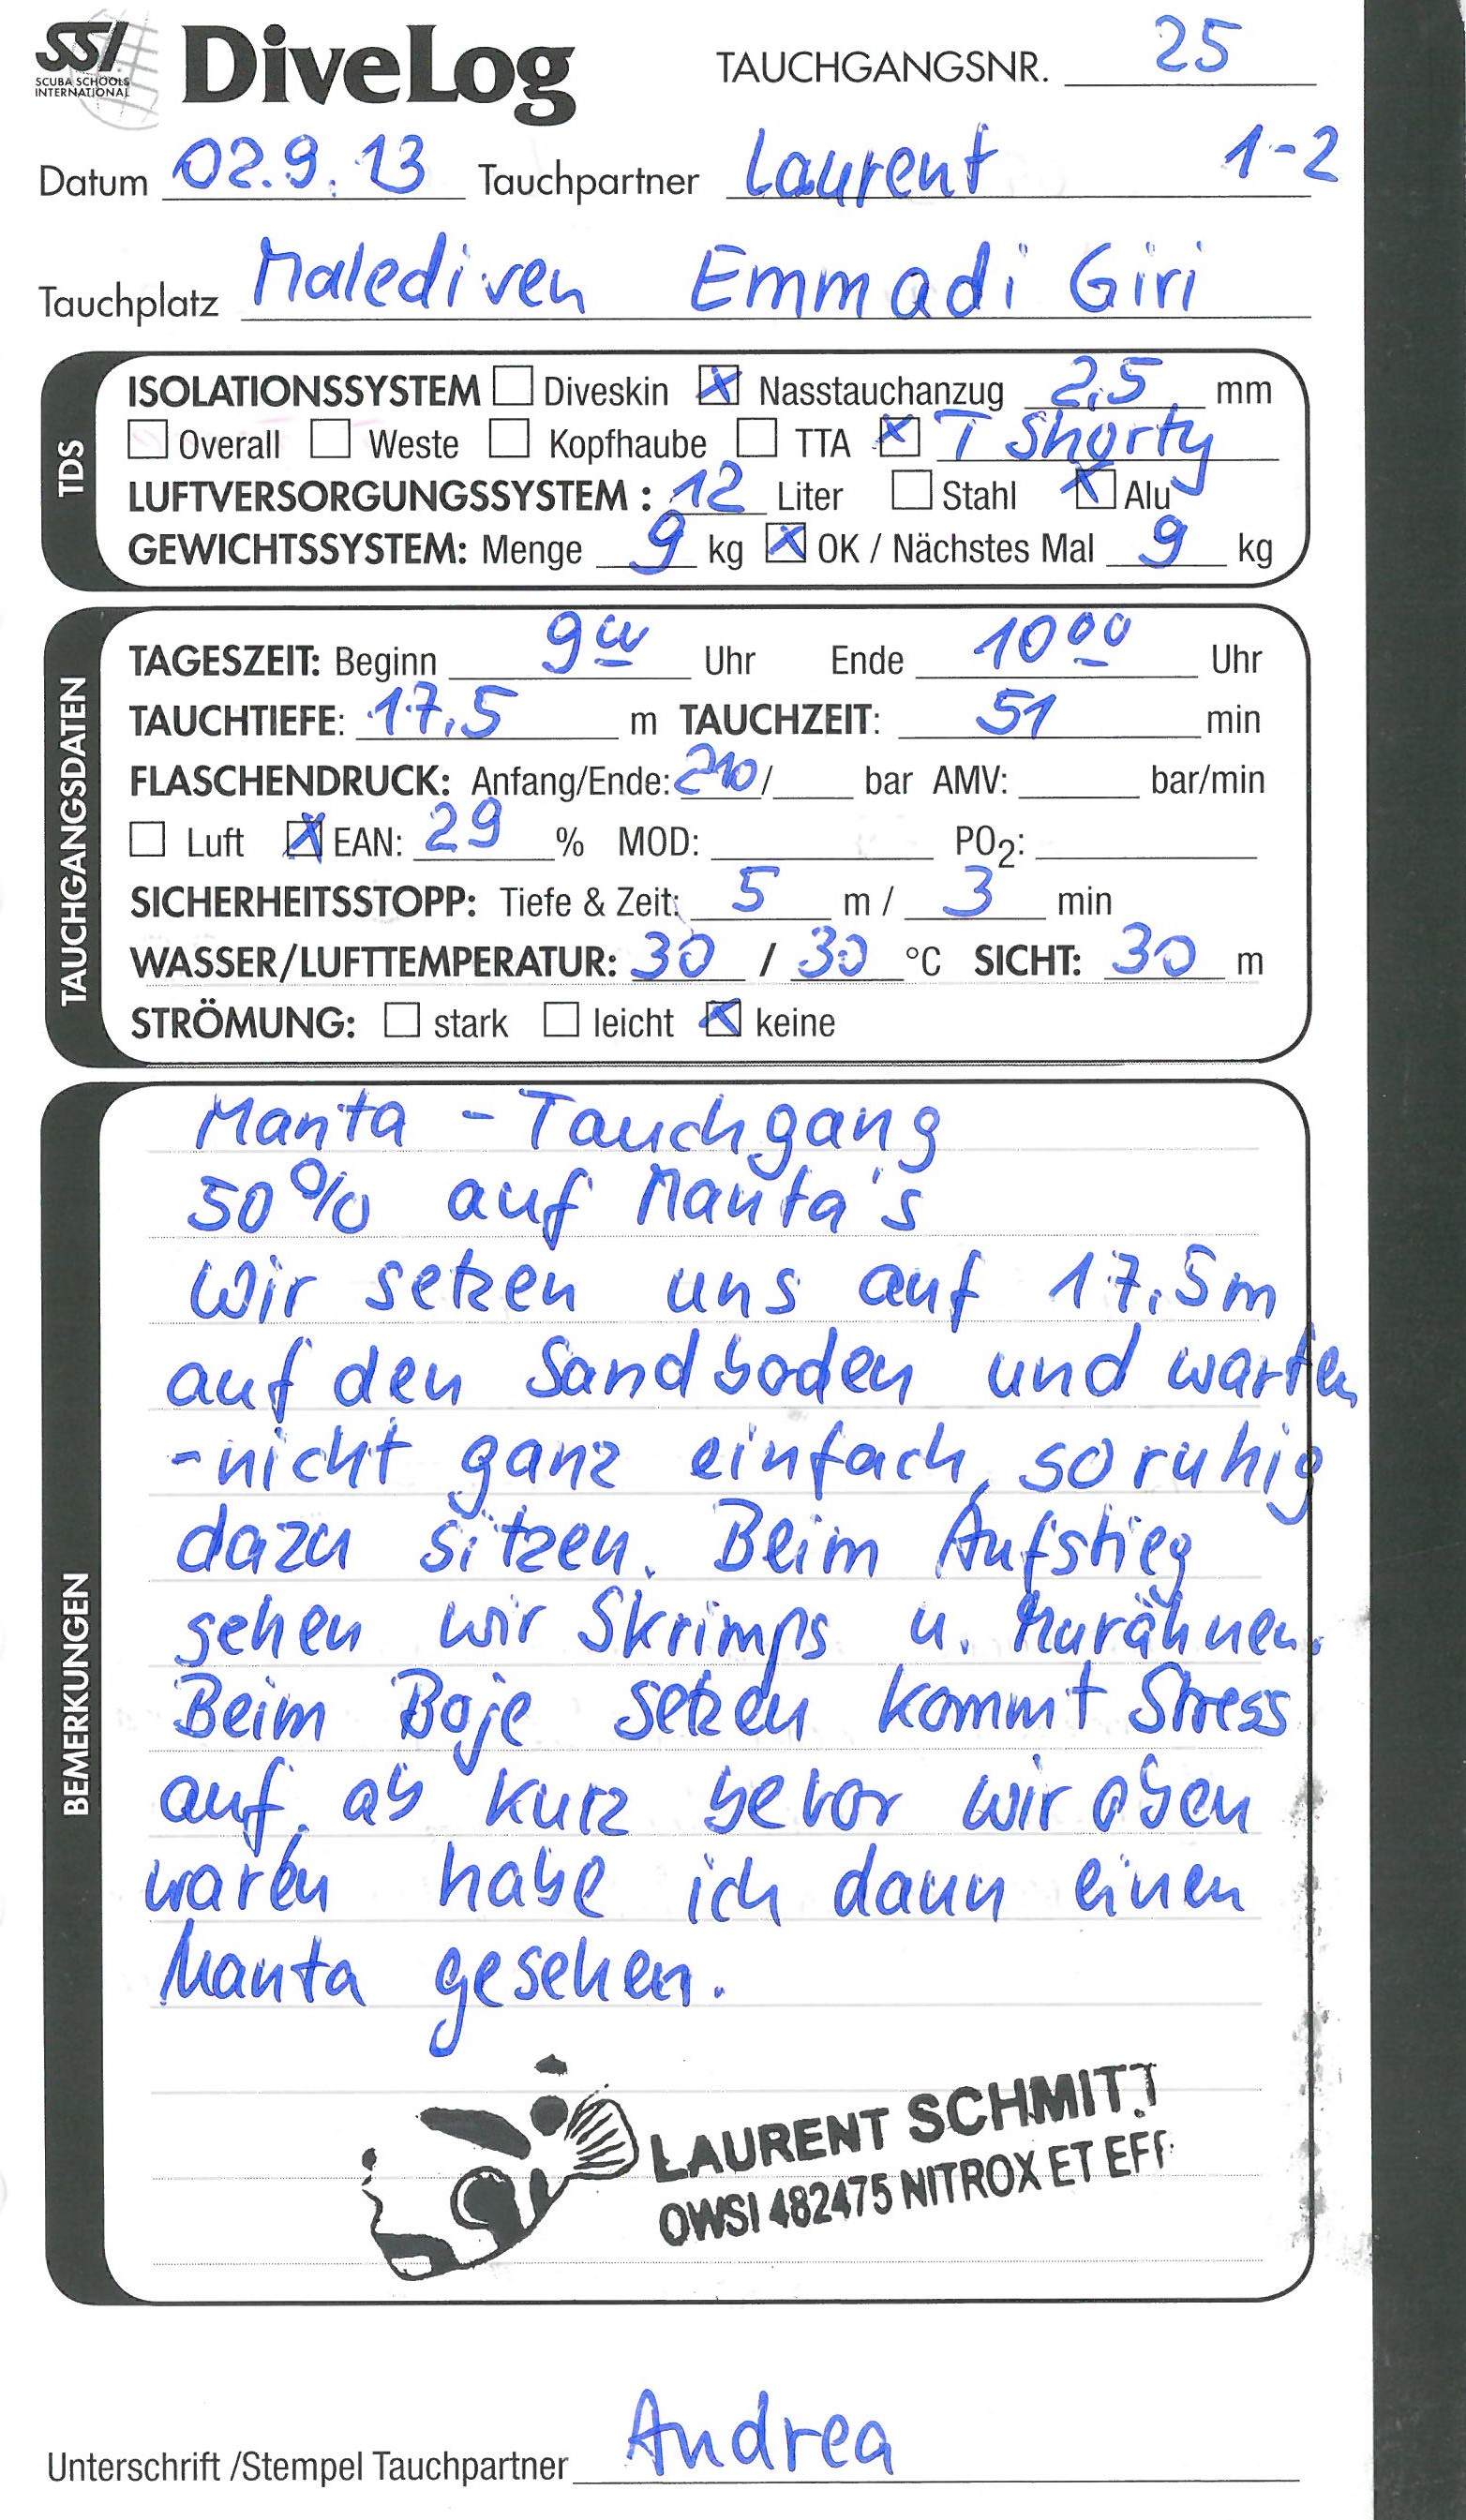 SSI DiveLog TAUCHGANGSNR. 25
SCUBA SCHOOLS
INTERNATIONAL
Datum 02.9.13 Tauchpartner Laurent 1-2
Tauchplatz Malediven Emmadi Giri
TDS
ISOLATIONSSYSTEM Diveskin Nasstauchanzug 2,5 mm
Overall Weste Kopfhaube TTA T Shorty
LUFTVERSORGUNGSSYSTEM: 12 Liter Stahl Alu
GEWICHTSSYSTEM: Menge 9 kg OK / Nächstes Mal 9 kg
TAUCHGANGSDATEN
TAGESZEIT: Beginn 9 00 Uhr Ende 10 00 Uhr
TAUCHTIEFE: 17,5 m TAUCHZEIT: 51 min
FLASCHENDRUCK: Anfang/Ende: 210/ bar AMV: bar/min
Luft EAN: 29 % MOD: PO2:
SICHERHEITSSTOPP: Tiefe & Zeit: 5 m / 3 min
WASSER/LUFTTEMPERATUR: 30 / 30 °C SICHT: 30 m
STRÖMUNG: stark leicht keine
BEMERKUNGEN
Manta - Tauchgang
50% auf Manta's
Wir setzen uns auf 17,5m
auf den Sandboden und warten
-nicht ganz einfach, so ruhig
dazu sitzen. Beim Aufstieg
sehen wir Skrimps u. Murähnen.
Beim Boje setzen kommt Stress
auf, ab kurz bevor wir oben
waren habe ich dann einen
Manta gesehen.
LAURENT SCHMITT
OWSI 482475 NITROX ET EFR
Unterschrift /Stempel Tauchpartner Andrea